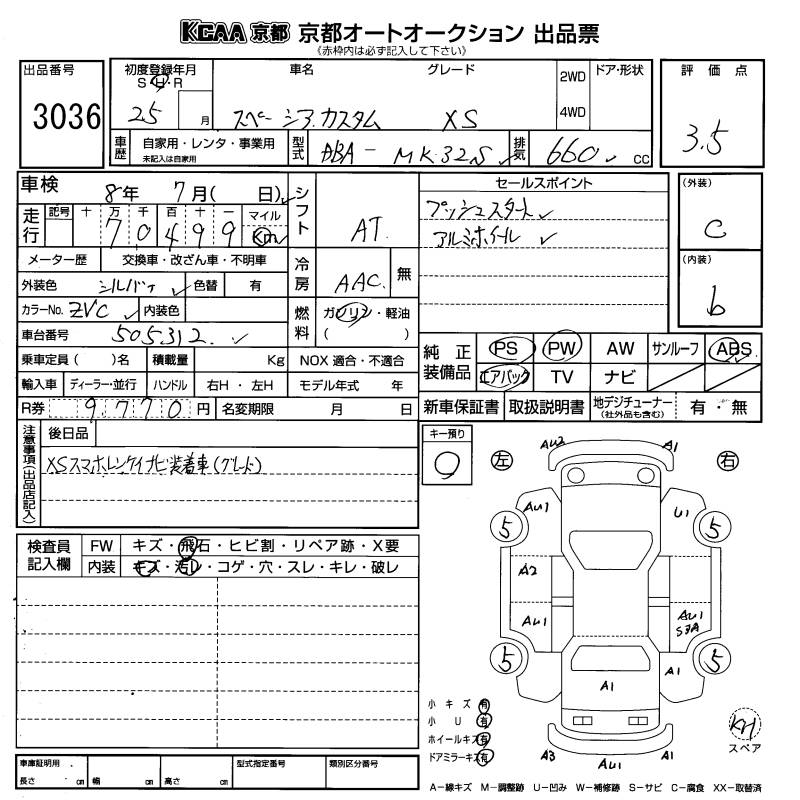 KCAA 京都 京都オートオークション 出品票
(赤枠内は必ず記入して下さい)
出品番号
3036
初度登録年月
S H R
25 月
車名 グレード
スペーシア カスタム XS
2WD
4WD
ドア・形状
評価点
3.5
車歴
自家用・レンタ・事業用
未記入は自家用
型式
DBA - MK32S
排気
660 cc
車検
8年 7月( 日)
シフト
AT
走行
記号 十 万 千 百 十 一 マイル
7 0 4 9 9 Km
メーター歴 交換車・改ざん車・不明車
冷房
AAC 無
外装色 シルバー 色替 有
カラーNo. ZVC 内装色
燃料
ガソリン・軽油
( )
車台番号 505312
乗車定員( )名 積載量 Kg NOX 適合・不適合
輸入車 ディーラー・並行 ハンドル 右H・左H モデル年式 年
R券 9,770 円 名変期限 月 日
セールスポイント
プッシュスタート
アルミホイール
(外装)
C
(内装)
b
純正装備品
PS PW AW サンルーフ ABS
エアバック TV ナビ
新車保証書 取扱説明書 地デジチューナー 有・無
(社外品も含む)
注意事項(出品店記入)
後日品
XSスマホレンケイナビ装着車(グレード)
キー預り
検査員記入欄
FW キズ・飛石・ヒビ割・リペア跡・X要
内装 キズ・汚レ・コゲ・穴・スレ・キレ・破レ
左 右
AU2 A1
AU1 U1
5 5
A2
AU1 AU1
S3A
5 5
A1
A1
A3 AU1 A1
小キズ 有
小U 有
ホイールキズ 有
ドアミラーキズ 有
スペア
車庫証明用
長さ cm 幅 cm 高さ cm
型式指定番号
類別区分番号
A―線キズ M―調整跡 U―凹み W―補修跡 S―サビ C―腐食 XX―取替済